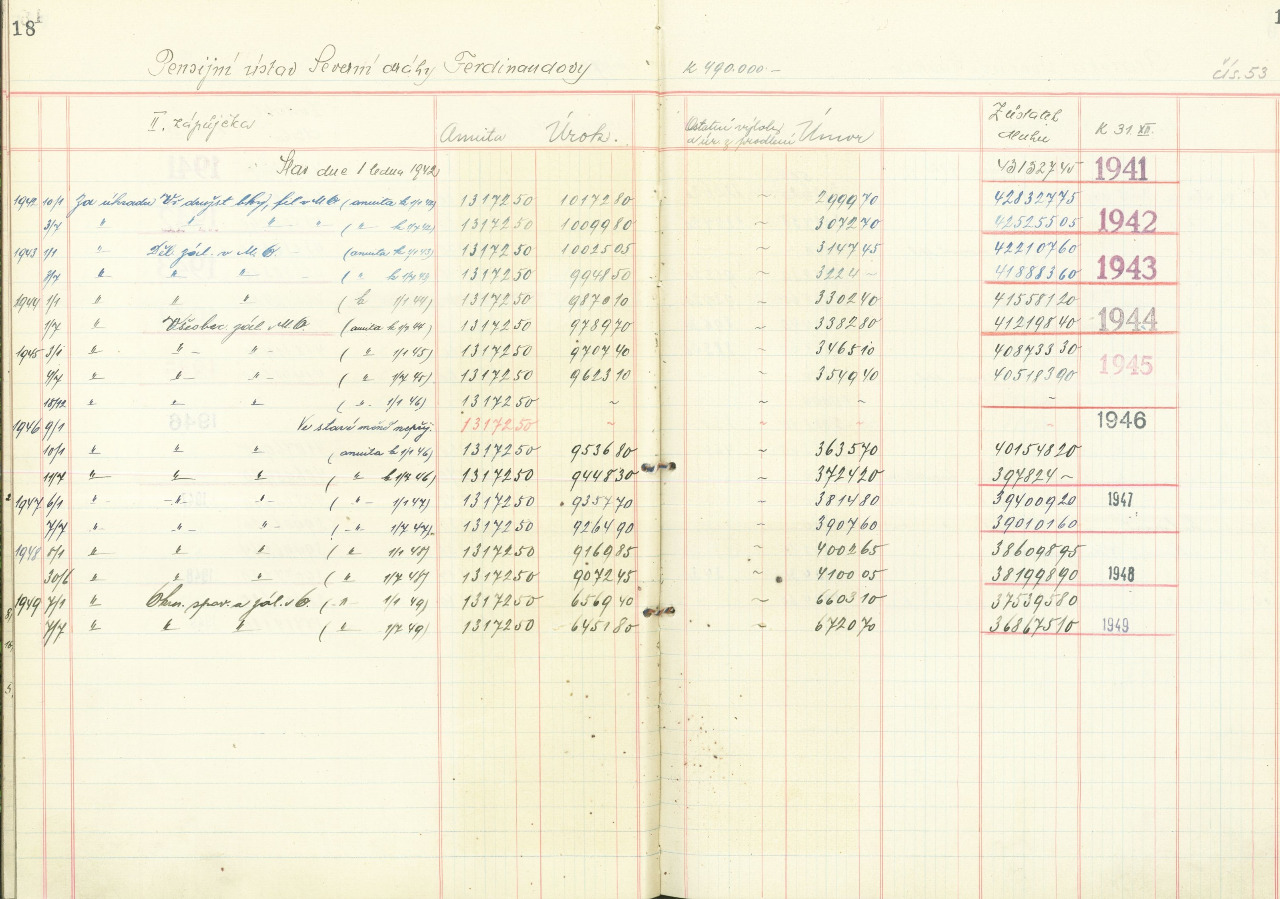 18
Pensijní ústav Severní dráhy Ferdinandovy K 490.000.- čís. 53
II. zápůjčka Anuita Úrok. Ostatní výlohy a úr. z prodlení Úmor Zůstatek dluhu K 31. XII.
Stav dne 1. ledna 1942 431327 45 1941
1942 10/1 Za úhradu (anuita k 1/1 42) 13172 50 10172 80 ~ 2999 70 428327 75
3/7 " " " " ( " k 1/7 42) 13172 50 10099 80 ~ 3072 70 425255 05 1942
1943 1/1 " Děl. zál. v M.O. - (anuita k 1/1 43) 13172 50 10025 05 ~ 3147 45 422107 60
2/7 " " " ( " k 1/7 43) 13172 50 9948 50 ~ 3224 ~ 418883 60 1943
1944 1/1 " " " ( k 1/1 44) 13172 50 9870 10 ~ 3302 40 415581 20
1/7 " Všeobec. zál. v M.O. (anuita k 1/7 44) 13172 50 9789 70 ~ 3382 80 412198 40 1944
1945 3/1 " " - " - ( " 1/1 45) 13172 50 9707 40 ~ 3465 10 408733 30 1945
4/7 " " - " - ( " 1/7 45) 13172 50 9623 10 ~ 3549 40 405183 90
15/12 " " " ( " - 1/1 46) 13172 50 ~ ~ ~ ~
1946 9/1 Ve staré měně nepřij. 13172 50 ~ - - - 1946
10/1 " " " (anuita k 1/1 46) 13172 50 9536 80 ~ 3635 70 401548 20
11/7 " " " ( " k 1/7 46) 13172 50 9448 30 ~ 3724 20 397824 ~
1947 6/1 " - " - " - ( " - 1/1 47) 13172 50 9357 70 ~ 3814 80 394009 20 1947
7/7 " " - " - ( - " 1/7 47) 13172 50 9264 90 ~ 3907 60 390101 60
1948 5/1 " " " ( " 1/1 48) 13172 50 9169 85 ~ 4002 65 386098 95
30/6 " " " ( " 1/7 48) 13172 50 9072 45 ~ 4100 05 381998 90 1948
1949 7/1 " Okr. spoř. a zál. v O. ( - " - 1/1 49) 13172 50 6569 40 ~ 6603 10 375395 80
7/7 " " " ( " 1/7 49) 13172 50 6451 80 ~ 6720 70 368675 10 1949